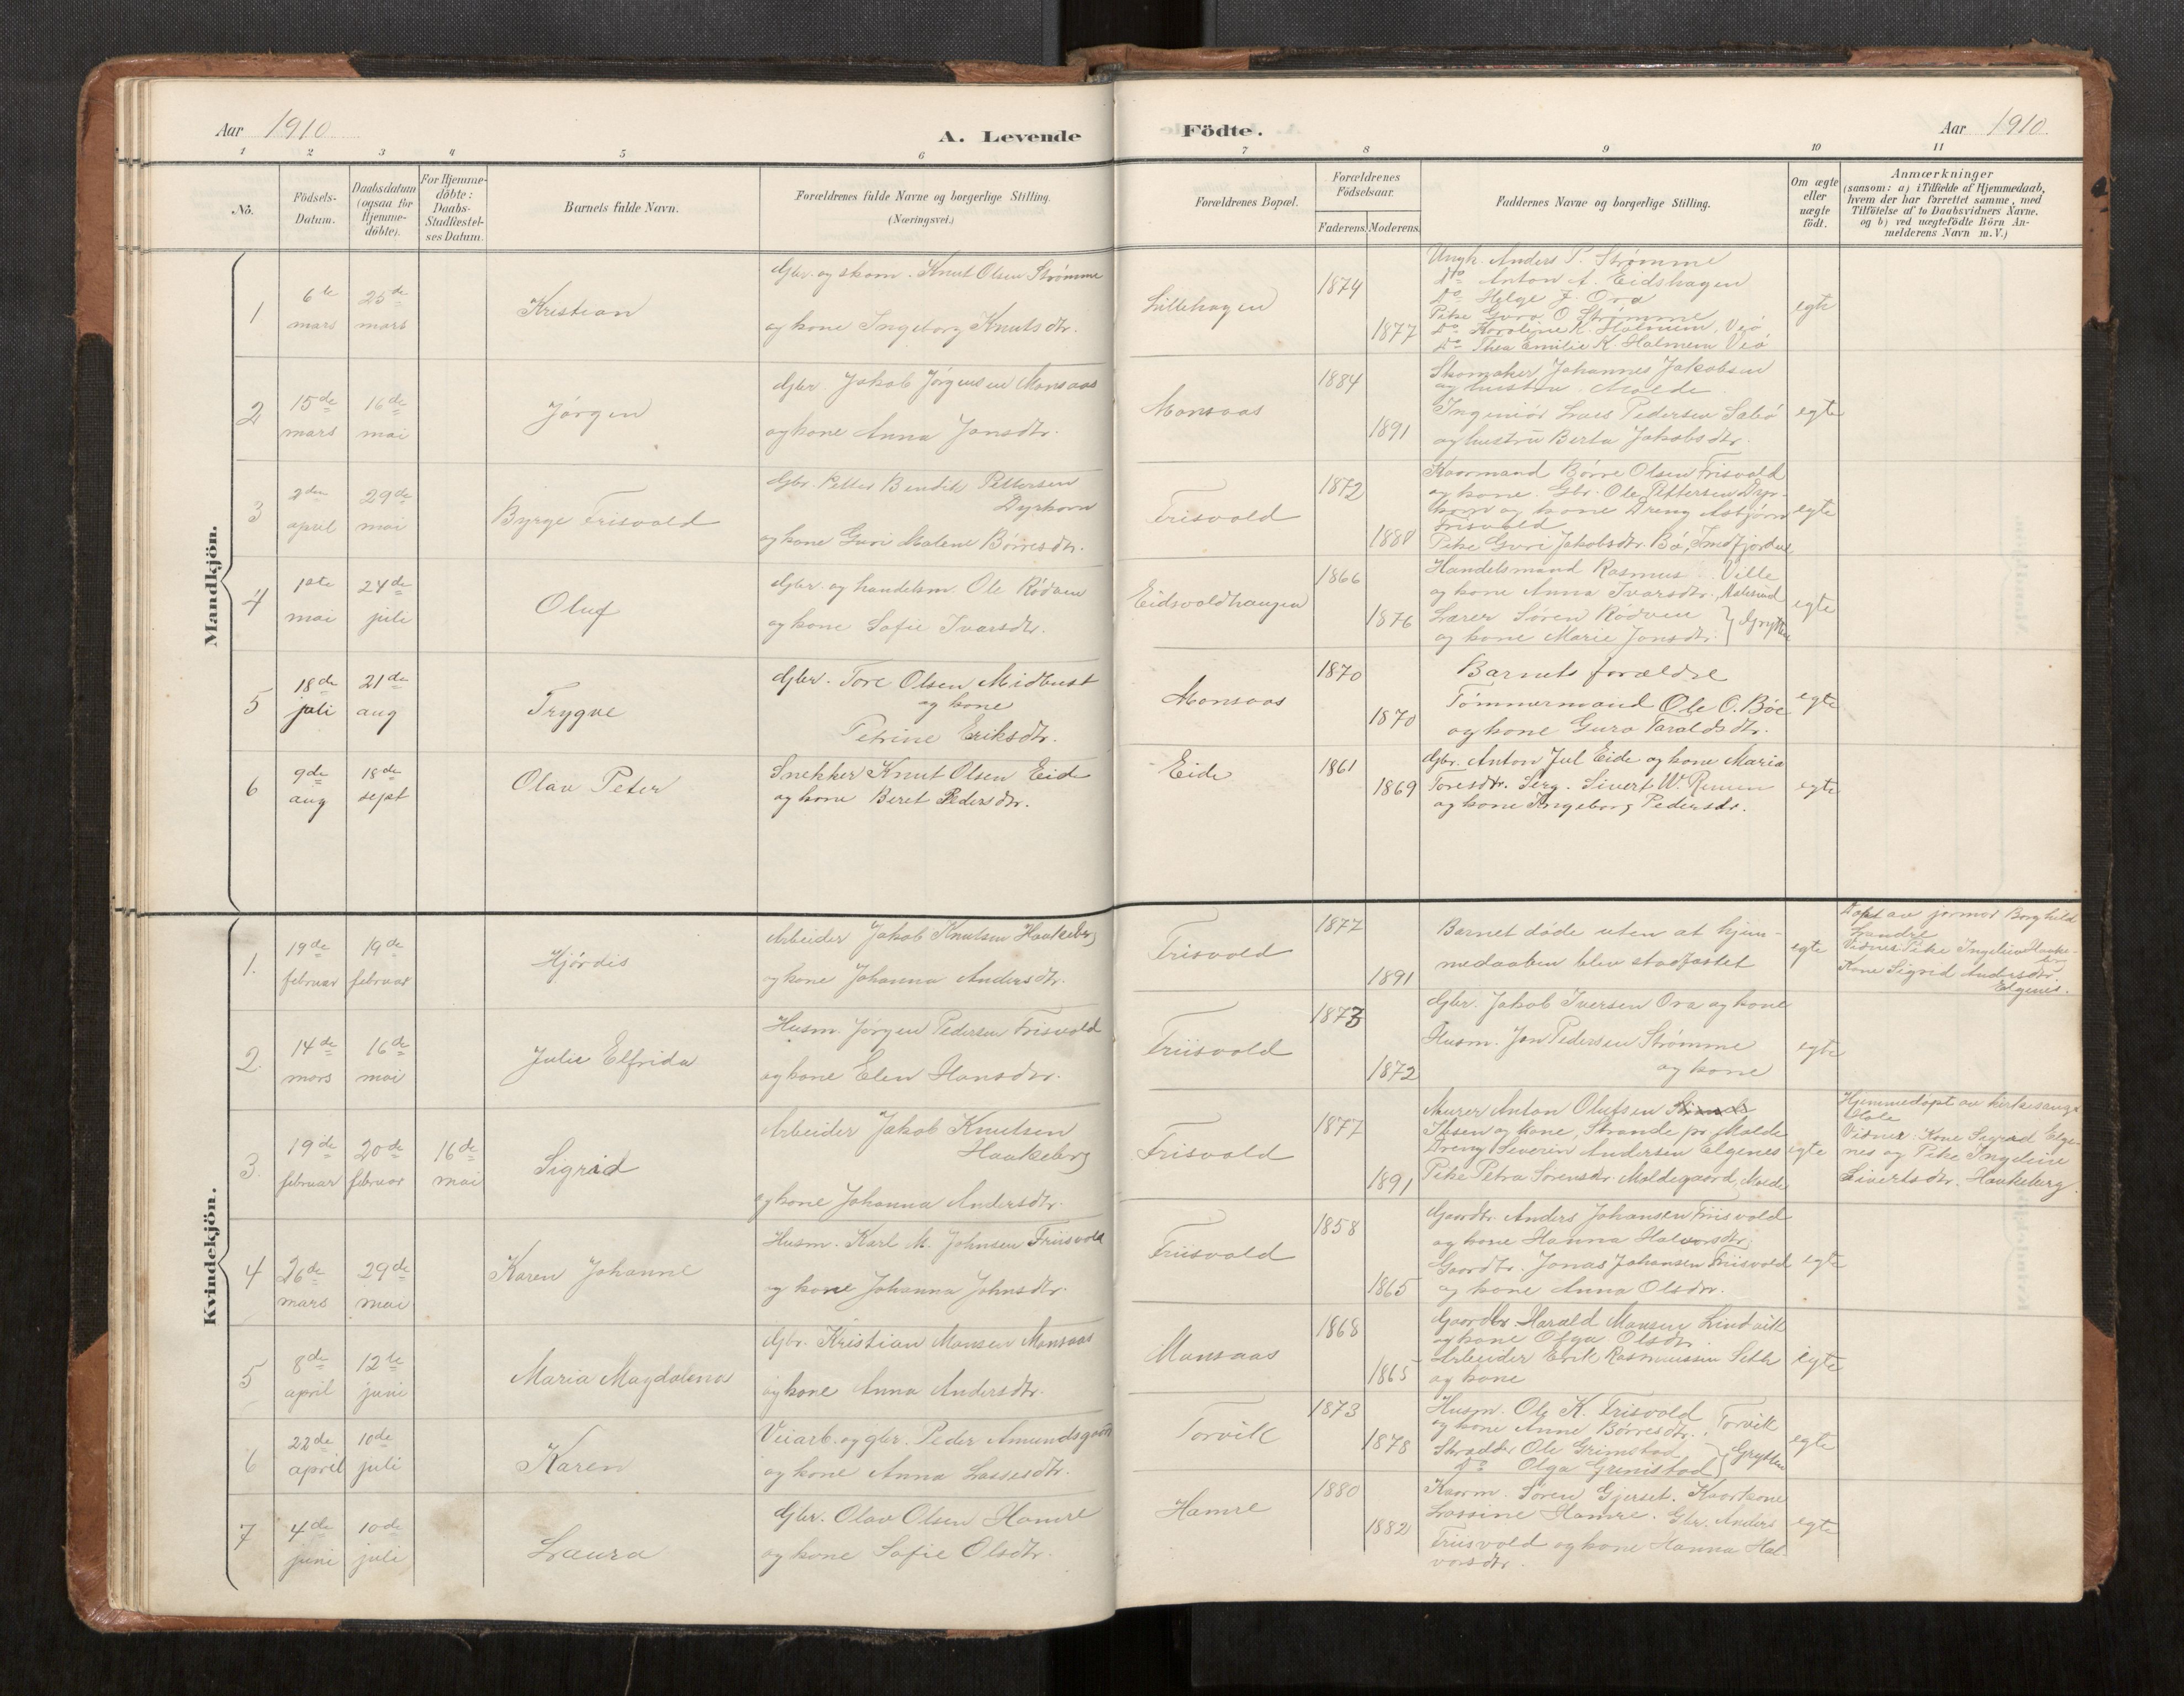 Aar 1910
A. Levende
Födte.
Aar 1910.
1 2 3 4 5 6 7 8 9 10 11
No.
Födsels-
Datum.
Daabsdatum
(ogsaa for
Hjemme-
döbte).
For Hjemme-
döbte:
Daabs-
Stadfæstel-
ses Datum.
Barnets fulde Navn.
Forældrenes fulde Navne og borgerlige Stilling.
(Næringsvei.)
Forældrenes Bopæl.
Forældrenes
Födselsaar.
Faderens. Moderens.
Faddernes Navne og borgerlige Stilling.
Om ægte
eller
uægte
födt.
Anmærkninger
(saasom: a) i Tilfælde af Hjemmedaab,
hvem der har forrettet samme, med
Tilföielse af to Daabsvidners Navne.
og b) ved uægtefödte Börn An-
melderens Navn m. V.)
Mandkjön.
1
6te
mars
25de
mars
Kristian
Gbr. og skom. Knut Olsen Strømme
og kone Ingeborg Knutsdtr.
Lillehagen
1874
1877
Ungk. Anders P. Strømme
Do Anton A. Eidshagen
Do Helge J. Ora
Pike Guro O Strømme
Do Karoline K. Holmem, Veø,
Do Thea Emilie K. Holmem Veø
egte
2
15de
mars
16de
mai
Jørgen
Gbr. Jakob Jørgensen Monsaas
og kone Anna Jonsdtr.
Monsaas
1884
1891
Skomaker Johannes Jakobsen
og hustru Molde
Ingeniør Lars Pedersen Sabø
og hustru Berta Jakobsdtr.
egte
3
2den
april
29de
mai
Byrge Frisvold
Gbr. Petter Bendik Pettersen
Dyrkorn
og kone Guri Malene Børresdtr.
Frisvold
1872
1880
Kaarmand Børre Olsen Frisvold
og kone. Gbr. Ole Pettersen Dyr-
korn og kone Dreng Asbjørn
Frisvold
Pike Guri Jakobsdtr. Bø, Innfjorden
egte
4
1ste
mai
24de
juli
Oluf
Gbr. og handelsm. Ole Rødven
og kone Sofie Ivarsdtr.
Eidsvoldhaugen
1866
1876
Handelsmand Rasmus Ville
og kone Anna Ivarsdtr., Aalesund
Lærer Søren Rødven
og kone Marie Jonsdtr. } Grytten
egte
5
18de
juli
21de
aug
Trygve
Gbr. Tore Olsen Midbust
og kone
Petrine Eriksdtr.
Monsaas
1870
1870
Barnets forældre
Tømmermand Ole O. Bøe
og kone Guro Taraldsdtr.
egte
6
9de
aug
18de
sept
Olav Peter
Snekker Knut Olsen Eide
og kone Beret Pedersdtr.
Eide
1861
1869
Gbr. Anton Jul Eide og kone Maria
Toresdtr. Serg. Sivert W. Remen
og kone Ingeborg Pedersdr.
egte
Kvindekjön.
1.
19de
februar
19de
februar
Hjørdis
Arbeider Jakob Knutsen Haakeberg
og kone Johanna Andersdtr.
Frisvold
1877
1891
Barnet døde uten at hjem-
medaaben blev stadfæstet
egte
Døpt av jormor Borghild
Landre
Vidner: Pike Ingeline Haake-
berg
Kone Sigrid Andersdtr.
Elgenes.
2.
14de
mars
16de
mai
Julie Elfrida
Husm. Jørgen Pedersen Frisvold
og kone Elen Hansdtr.
Friisvold
1873
1872
Gbr. Jakob Iversen Ora og kone
Husm. Jon Pedersen Strømme
og kone
egte
3.
19de
februar
20de
februar
16de
mai
Sigrid
Arbeider Jakob Knutsen
Haakeberg
og kone Johanna Andersdtr.
Frisvold
1877
1891
Murer Anton Olufsen Strande
Ibsen og kone, Strande pr. Molde
Dreng Severin Andersen Elgenes
Pike Petra Sørensdr. Moldegaard, Molde
egte
Hjemmedøpt av kirkesang.
Hole
Vidner: Kone Sigrid Elge-
nes og Pike Ingeline
Sivertsdtr. Haakeberg.
4
26de
mars
29de
mai
Karen Johanne
Husm. Karl M. Johnsen Friisvold
og kone Johanna Johnsdtr.
Friisvold
1858
1865
Gaardbr. Anders Johansen Friisvold
og kone Hanna Halvorsdtr.
Gaardbr. Jonas Johansen Friisvold
og kone Anna Olsdtr.
egte
5
8de
april
12te
juni
Maria Magdalena
Gbr. Kristian Monsen Monsaas
og kone Anna Andersdtr.
Monsaas
1868
1865
Gaardbr. Harald Monsen Lindvik
og kone Olga Olsdtr
Arbeider Erik Rasmussen Seth
og kone
egte
6
22de
april
10de
juli
Karen
Veiarb. og gbr. Peder Amundsgaard
og kone Anna Lassesdtr.
Torvik
1873
1878
Husm. Ole K. Frisvold
og kone Anne Børresdtr. Torvik
Skrædder Ole Grimstad
Do Olga Grimstad } Grytten
egte
7
4de
juni
10de
juli
Laura
Gbr. Olav Olsen Hamre
og kone Sofie Olsdtr.
Hamre
1880
1882
Kaarm. Søren Gjerset. Kaarkone
Lassine Hamre. Gbr. Anders
Friisvold og kone Hanna Hal-
vorsdtr.
egte